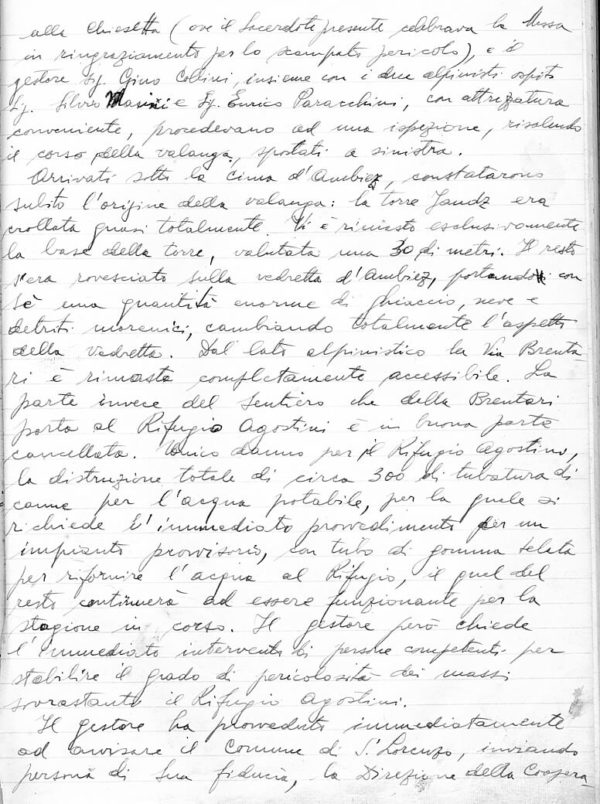 alla chiesetta (ove il Sacerdote presente celebrava la Messa
in ringraziamento per lo scampato pericolo), e il
gestore Sig. Gino Collini, insieme con i due alpinisti ospiti
Sig. Silvio Masini e Sig. Enrico Paracchini, con attrezzatura
conveniente, procedevano ad una ispezione, risalendo
il corso della valanga, spostati a sinistra.
Arrivati sotto la Cima d'Ambiez, constatarono
subito l'origine della valanga: la torre Jandz era
crollata quasi totalmente. Vi è rimasto esclusivamente
la base della torre, valutata una 30 di metri. Il resto
s'era rovesciato sulla vedretta d'Ambiez, portando con
sè una quantità enorme di ghiaccio, neve e
detriti morenici, cambiando totalmente l'aspetto
della vedretta. Dal lato alpinistico la Via Brenta
ri è rimasta completamente accessibile. La
parte invece del Sentiero che dalla Brentari
porta al Rifugio Agostini è in buona parte
cancellata. Unico danno per il Rifugio Agostini,
la distruzione totale di circa 300 di tubatura di
canne per l'acqua potabile, per la quale si
richiede l'immediato provvedimento per un
impianto provvisorio, con tubo di gomma telata
per rifornire l'acqua al Rifugio, il quel del
resto continuerà ad essere funzionante per la
stagione in corso. Il gestore però chiede
l'immediato intervento di persone competenti per
stabilire il grado di pericolosità dei massi
sovrastante il Rifugio Agostini.
Il gestore ha provveduto immediatamente
ad avvisare il Comune di S. Lorenzo, inviando
persona di Sua fiducia, la Direzione della Coopera-